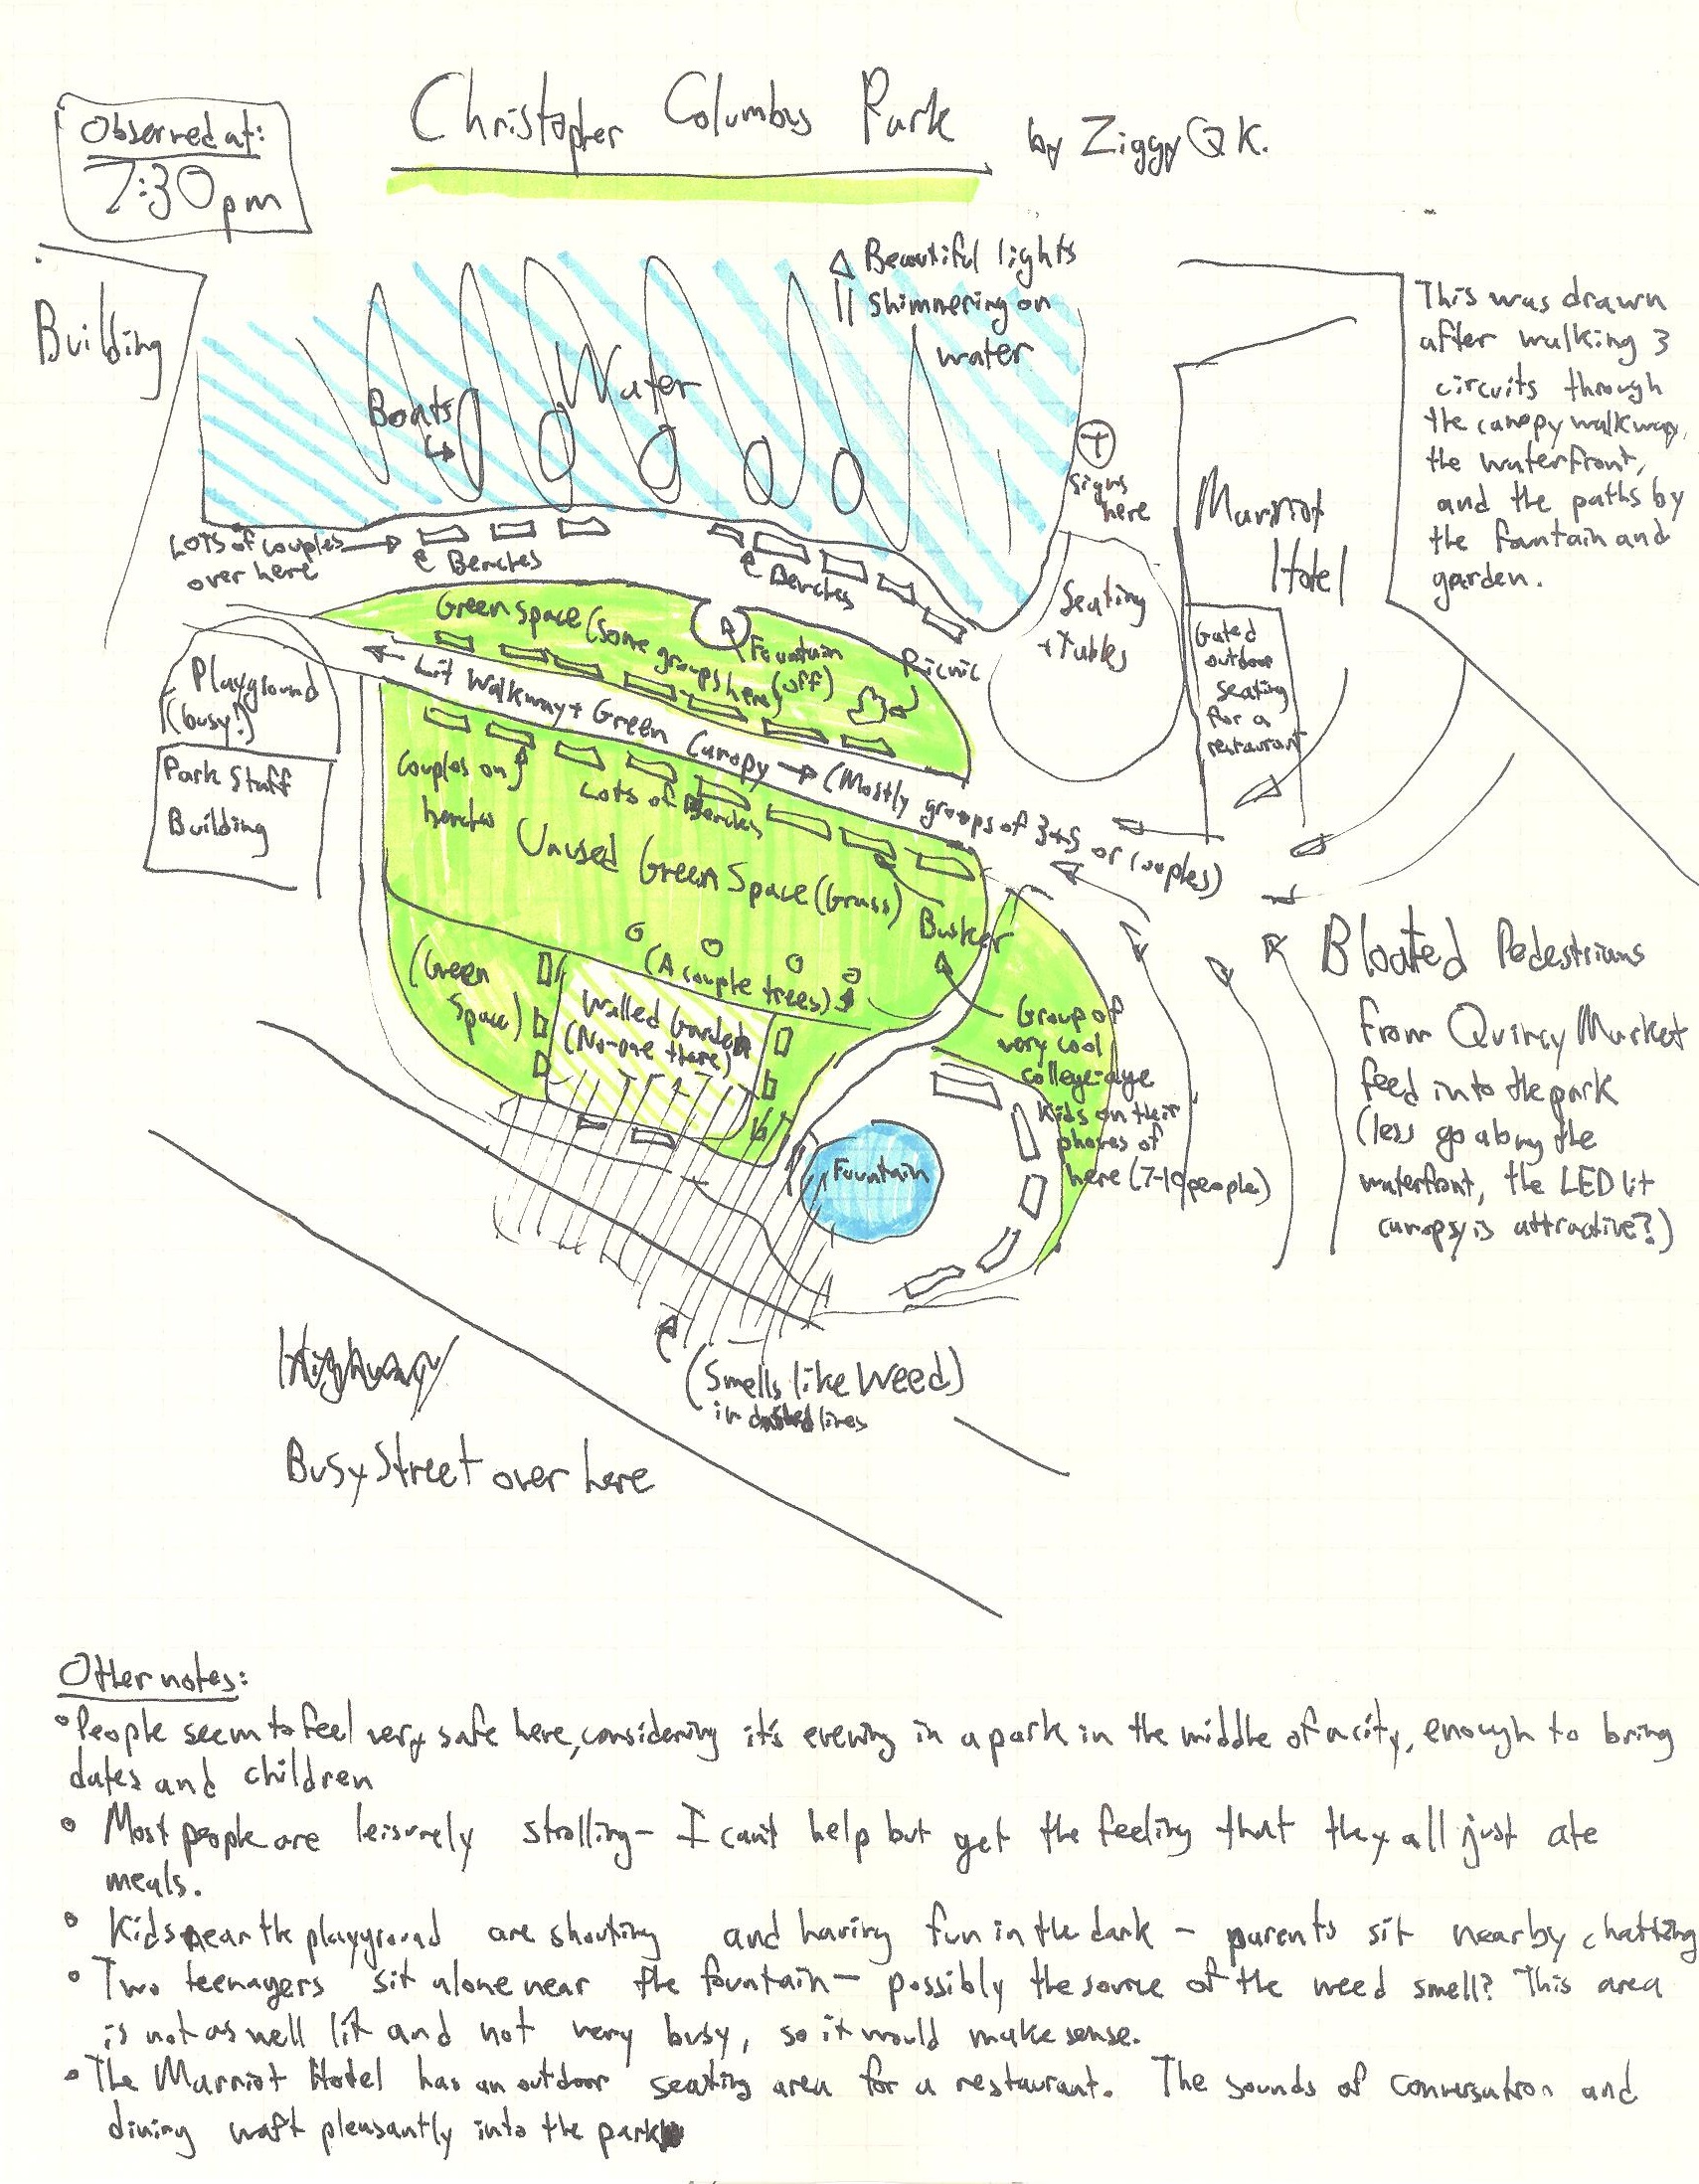 Observed at:
7:30pm
Christopher Columbus Park
by Ziggy Q K.
Building
Beautiful lights
shimmering on
water
Water
Boats
signs
here
This was drawn
after walking 3
circuits through
the canopy walkway,
the waterfront,
and the paths by
the fountain and
garden.
Marriot
Hotel
LOTS of couples
over here
Benches
Benches
Seating
+ Tables
Gated
outdoor
seating
for a
restaurant
Green space (some groups here)
Fountain
(off)
Picnic
Playground
(busy!)
Lit Walkway + Green Canopy
(Mostly groups of 3+5 or couples)
Park Staff
Building
Couples on
benches
Lots of Benches
Unused Green Space (Grass)
Busker
(A couple trees)
(Green
Space)
Walled Garden
(No-one there)
Group of
very cool
college-age
kids on their
phones of
here (7-10 people)
Fountain
Bloated Pedestrians
from Quincy Market
feed into the park
(less go along the
waterfront, the LED lit
canopy is attractive?)
Highway
(Smells like WEED)
in dashed lines
Busy Street over here
Other notes:
• People seem to feel very safe here, considering it's evening in a park in the middle of a city, enough to bring
dates and children
• Most people are leisurely strolling - I can't help but get the feeling that they all just ate
meals.
• Kids near the playground are shouting and having fun in the dark - parents sit nearby chatting
• Two teenagers sit alone near the fountain - possibly the source of the weed smell? This area
is not as well lit and not very busy, so it would make sense.
• The Marriot Hotel has an outdoor seating area for a restaurant. The sounds of conversation and
dining waft pleasantly into the park